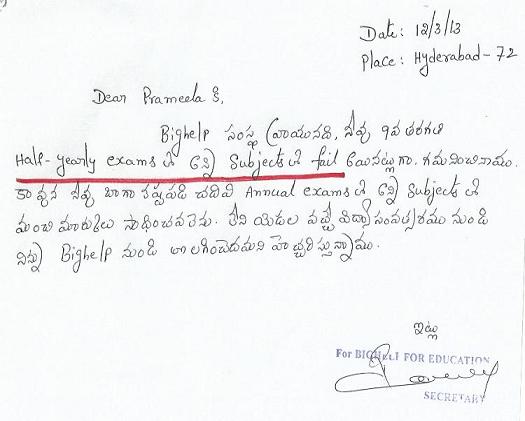 Date: 12/3/13
Place: Hyderabad-72
Dear Prameela కి,
Bighelp సంస్థ వ్రాయునది, నీవు 9వ తరగతి
Half-yearly exams లో అన్ని Subjects లో fail అయినట్లుగా గమనించినాము.
కావున నీవు బాగా కష్టపడి చదివి Annual exams లో అన్ని Subjects లో
మంచి మార్కులు సాధించవలెను. లేని యెడల వచ్చే విద్యా సంవత్సరము నుండి
నిన్ను Bighelp నుండి తొలగించెదమని హెచ్చరిస్తున్నాము.
ఇట్లు
For BIGHELP FOR EDUCATION
SECRETARY